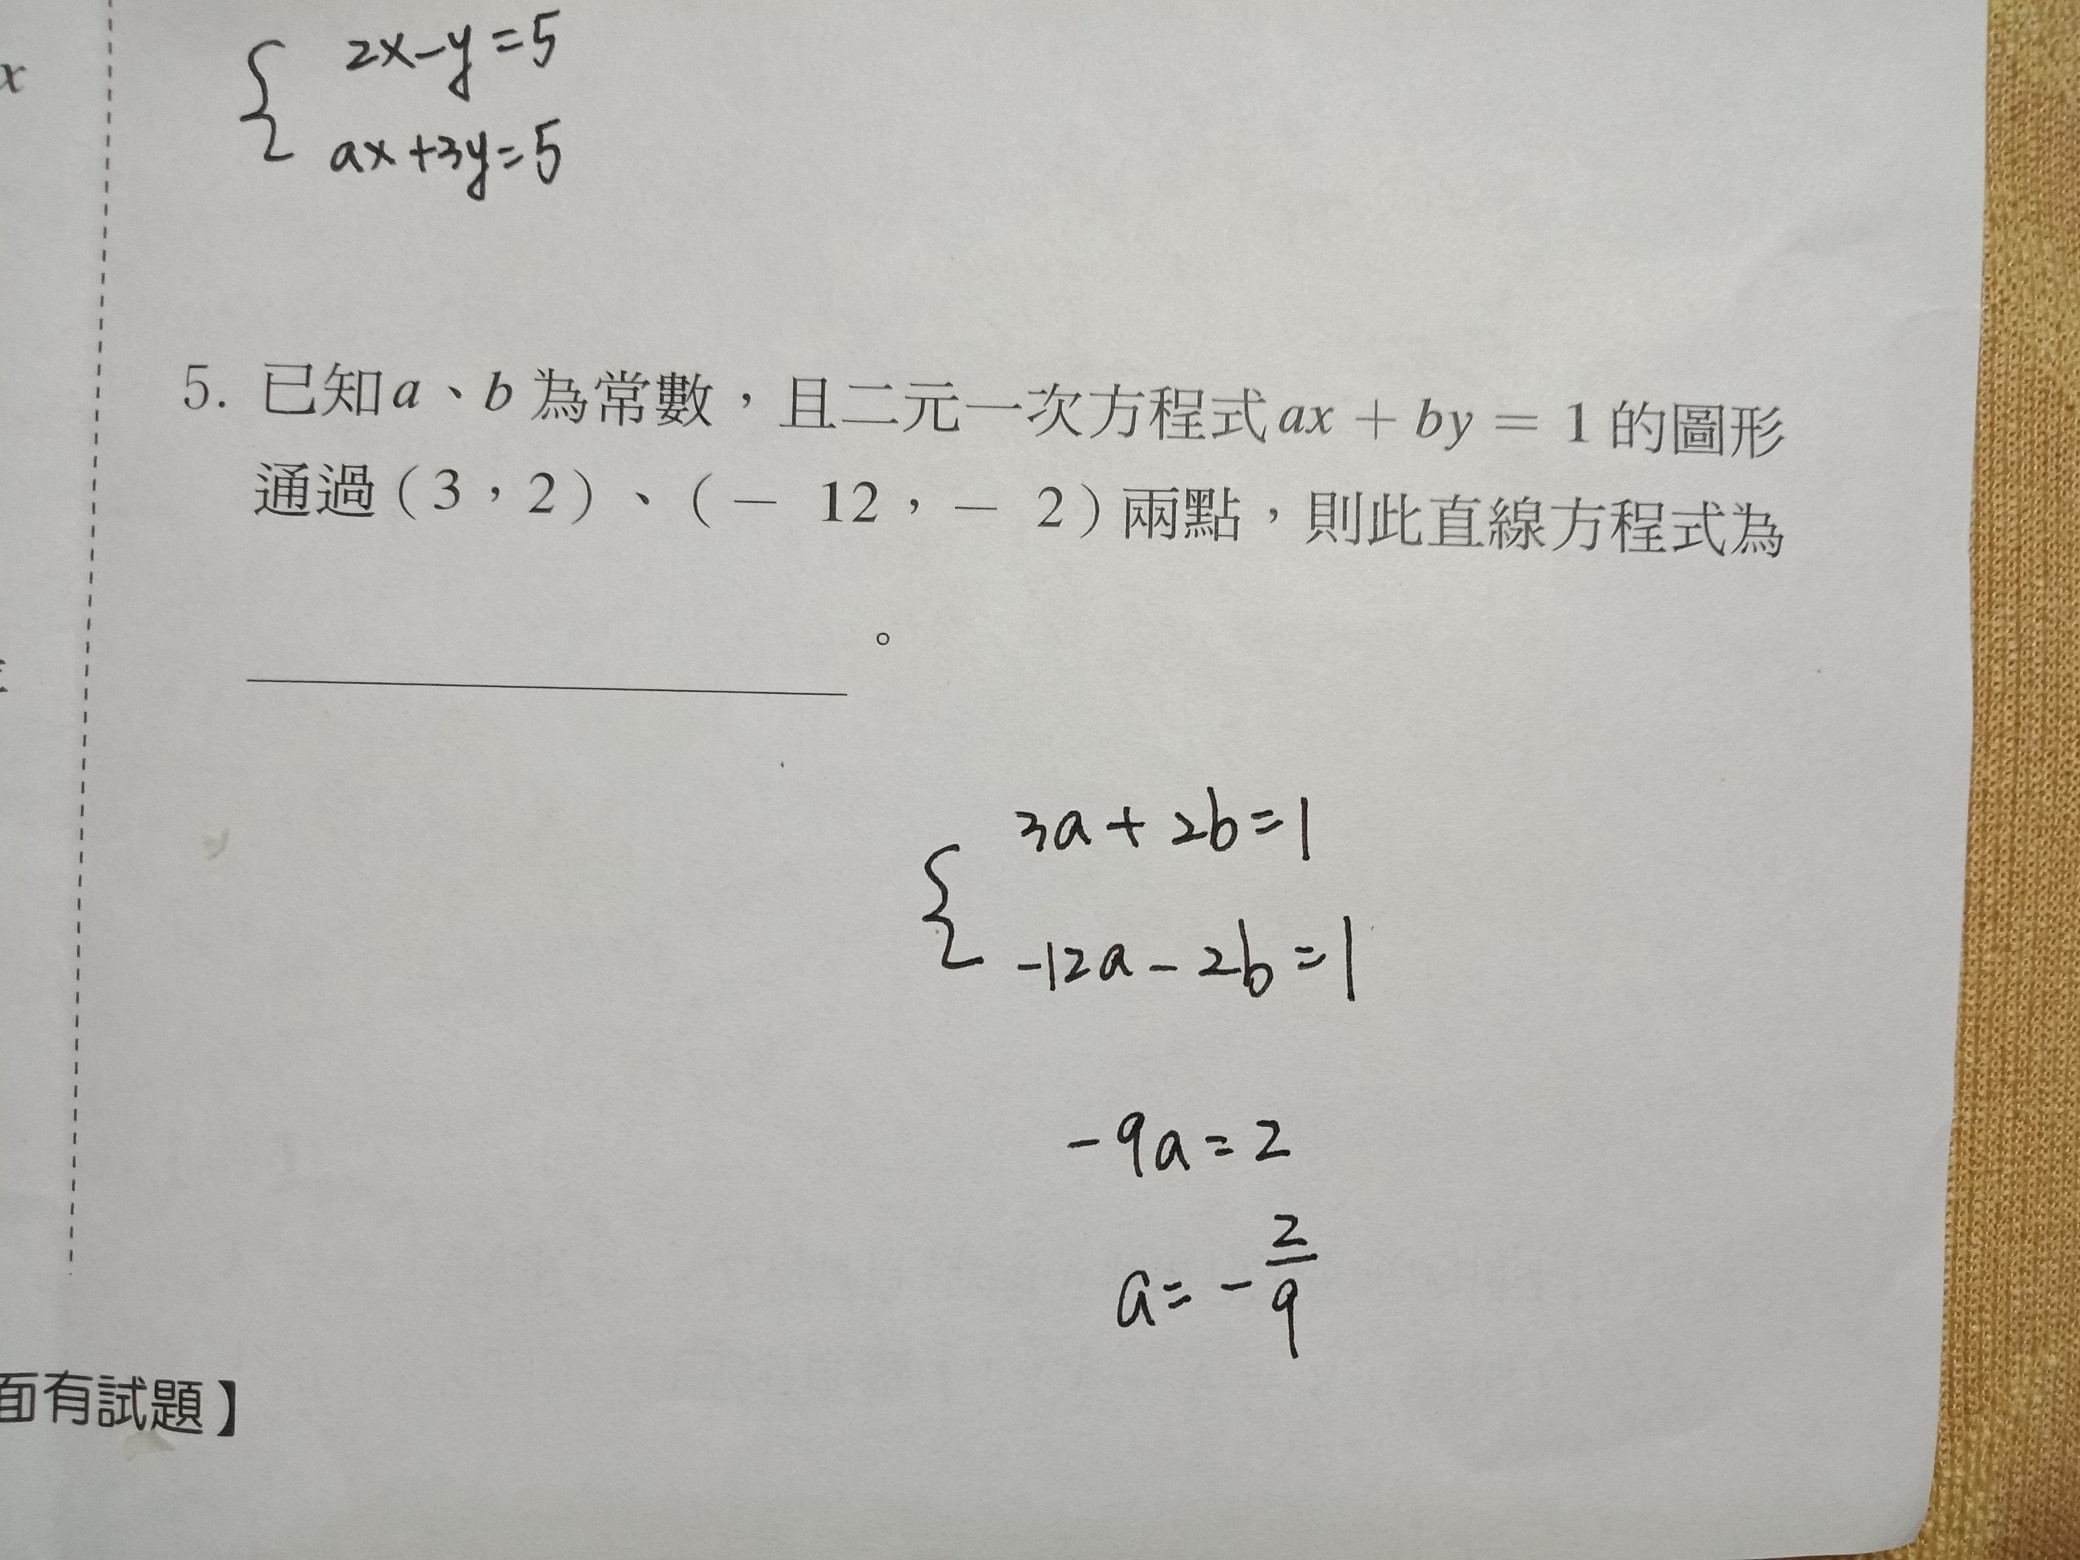 x
2x-y=5
ax+3y=5
5. 已知a、b為常數，且二元一次方程式ax + by = 1的圖形
通過(3，2)、(- 12，- 2)兩點，則此直線方程式為
。
3a+2b=1
-12a-2b=1
-9a=2
a=-2/9
面有試題】